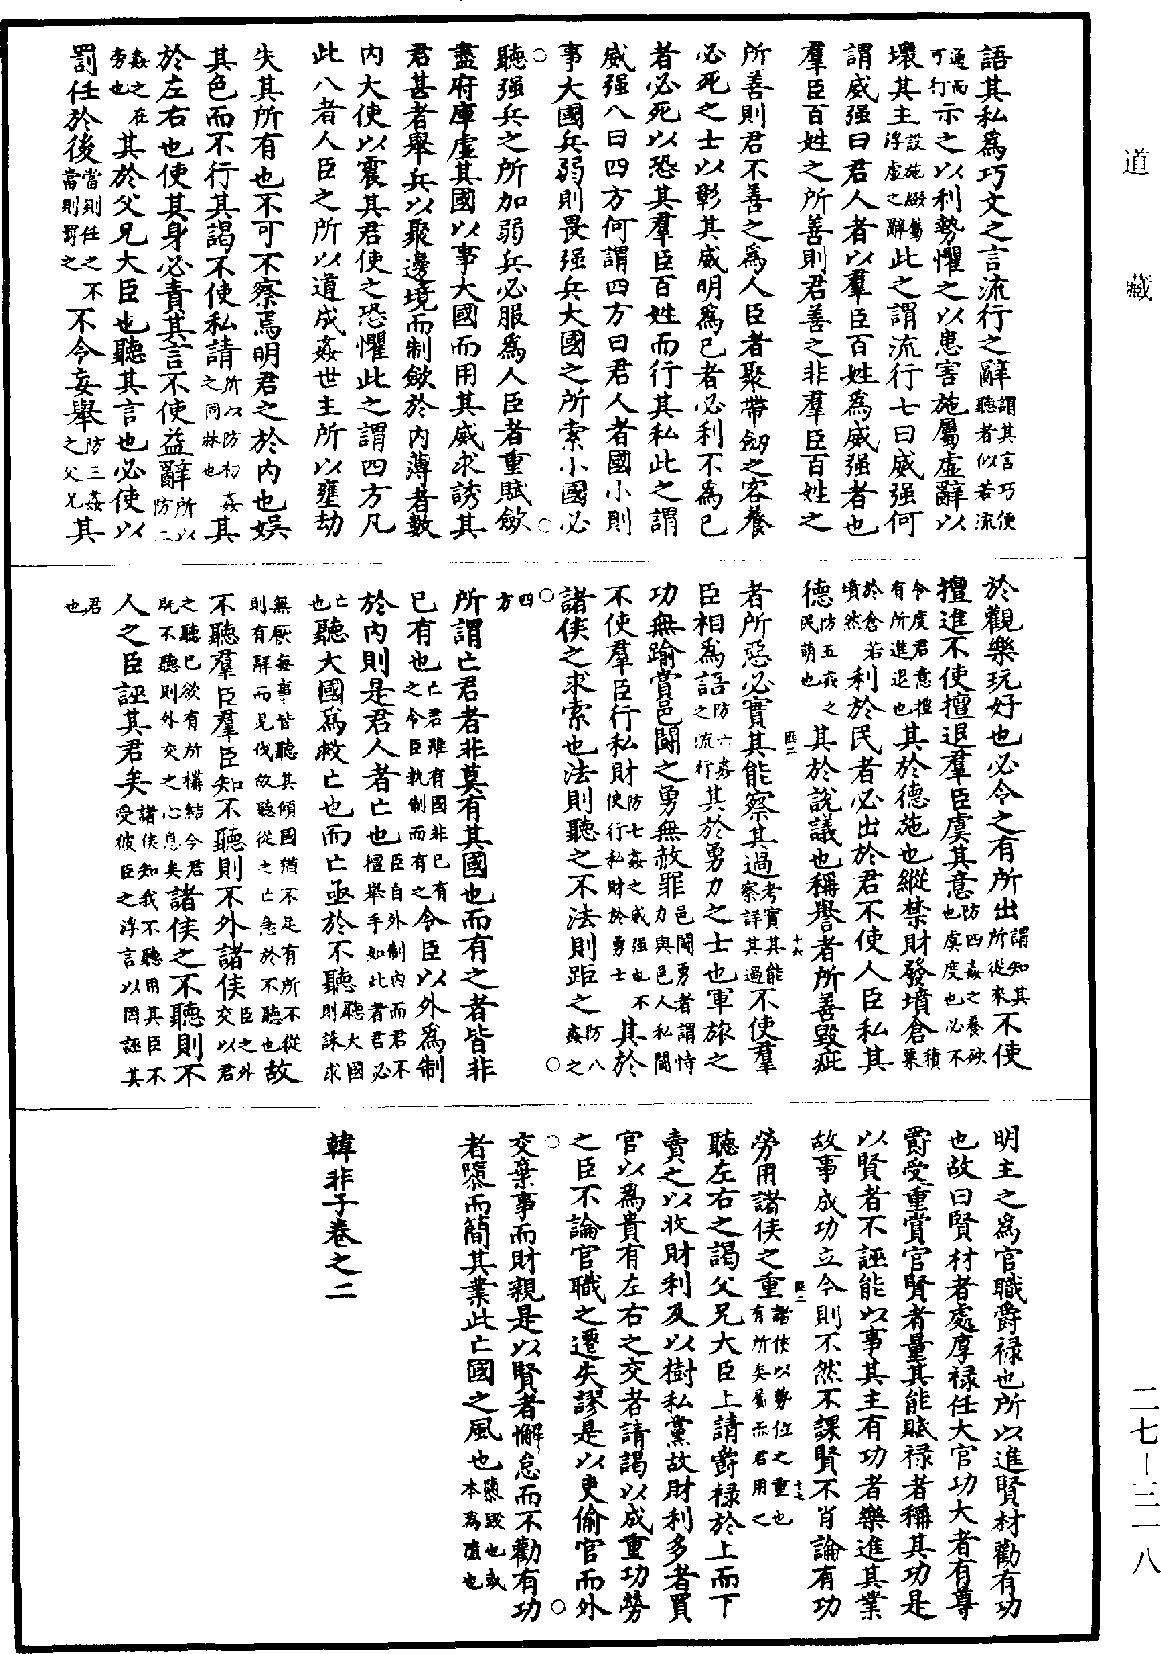 道藏
語其私為巧文之言流行之辭謂其言巧便聽者似若流
通而可行示之以利勢懼之以患害施屬虛辭以
壞其主設施綴屬浮虛之辭此之謂流行七曰威强何
謂威强曰君人者以羣臣百姓為威强者也
羣臣百姓之所善則君善之非羣臣百姓之
所善則君不善之為人臣者聚帶劒之客養
必死之士以彰其威明為已者必利不為已
者必死以恐其羣臣百姓而行其私此之謂
威强八曰四方何謂四方曰君人者國小則
事大國兵弱則畏强兵大國之所索小國必
聽强兵之所加弱兵必服為人臣者重賦斂
盡府庫虛其國以事大國而用其威求誘其
君甚者舉兵以聚邊境而制斂於內薄者數
內大使以震其君使之恐懼此之謂四方凡
此八者人臣之所以道成姦世主所以壅劫
失其所有也不可不察焉明君之於內也娛
其色而不行其謁不使私請所以防初姦之同牀也其
於左右也使其身必責其言不使益辭所以防二
姦之在旁也其於父兄大臣也聽其言也必使以
罰任於後當則任之不當則罰之不令妄舉防三姦之父兄其
於觀樂玩好也必令之有所出謂知其所從來不使
擅進不使擅退羣臣虞其意防四姦之養殃也虞度也必不
令度君意擅有所進退也其於德施也縱禁財發墳倉積粟
於倉若墳然利於民者必出於君不使人臣私其
德防五姦之民萌也其於說議也稱譽者所善毀疵
者所惡必實其能察其過考實其能察詳其過不使羣
臣相為語防六姦之流行其於勇力之士也軍旅之
功無踰賞邑鬬之勇無赦罪邑鬬勇者謂恃力與邑人私鬬
不使羣臣行私財防七姦之威强也不使行私財於勇士其於
諸侯之求索也法則聽之不法則距之防八姦之
四方
所謂亡君者非莫有其國也而有之者皆非
已有也亡君雖有國非已有之令臣執制而有之令臣以外為制
於內則是君人者亡也臣自外制內而君不擅舉手如此者君必
亡也聽大國為救亡也而亡亟於不聽聽大國則誅求
無厭每事皆聽其傾國猶不足有所不從則有辭而見伐故聽從之亡急於不聽也故
不聽羣臣羣臣知不聽則不外諸侯臣之外交以君
之聽已欲有所構結今君既不聽則外交之心息矣諸侯之不聽則不
人之臣誣其君矣諸侯知我不聽用其臣不受彼臣之浮言以罔誣其
君也
明主之為官職爵祿也所以進賢材勸有功
也故曰賢材者處厚祿任大官功大者有尊
爵受重賞官賢者量其能賦祿者稱其功是
以賢者不誣能以事其主有功者樂進其業
故事成功立今則不然不課賢不肖論有功
勞用諸侯之重諸侯以勢位之重也有所矣屬而君用之
聽左右之謁父兄大臣上請爵祿於上而下
賣之以收財利及以樹私黨故財利多者買
官以為貴有左右之交者請謁以成重功勞
之臣不論官職之遷失謬是以吏偷官而外
交棄事而財親是以賢者懈怠而不勸有功
者隳而簡其業此亡國之風也隳毀也或本為墮也
韓非子卷之二
二七—三一八